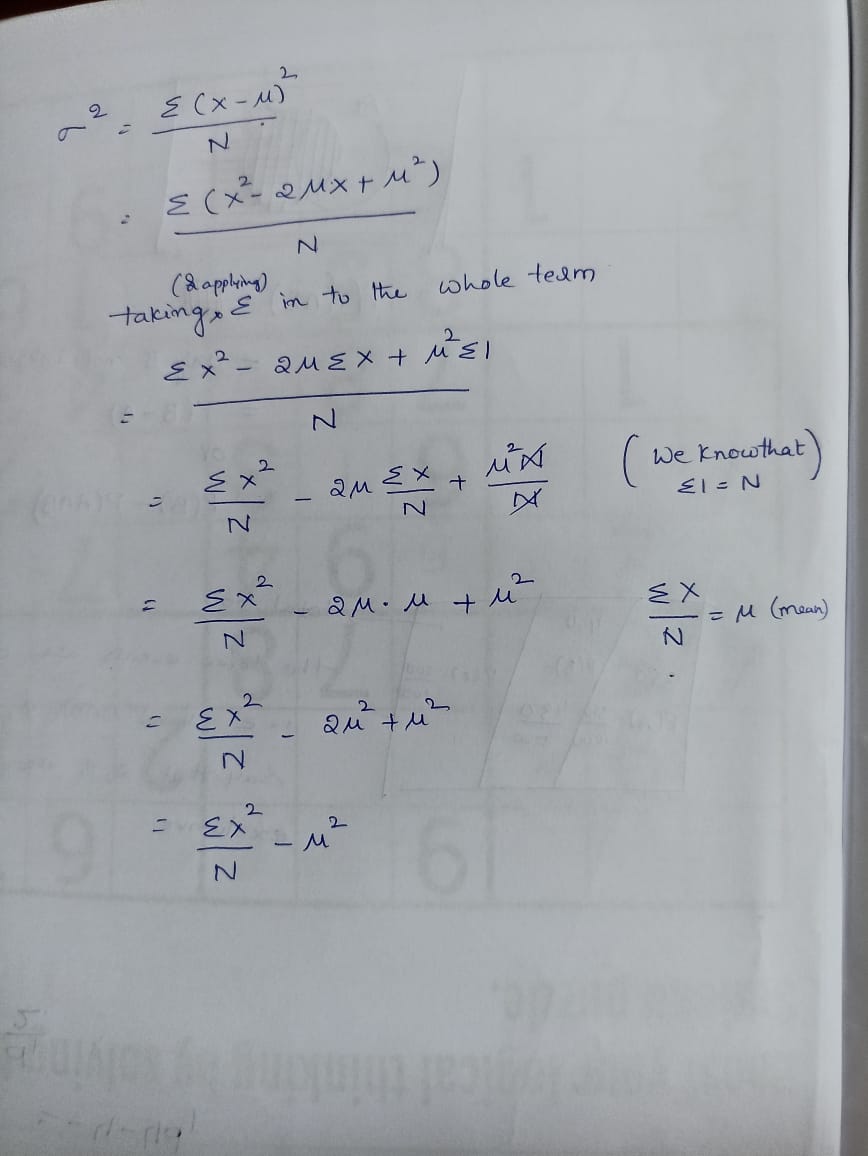 σ² = Σ(x-μ)² / N
= Σ(x² - 2μx + μ²) / N
(& applying)
taking Σ in to the whole team
= Σx² - 2μΣx + μ²Σ1 / N
= Σx²/N - 2μ Σx/N + μ²N/N (We know that) Σ1 = N
= Σx²/N - 2μ·μ + μ² Σx/N = μ (mean)
= Σx²/N - 2μ² + μ²
= Σx²/N - μ²